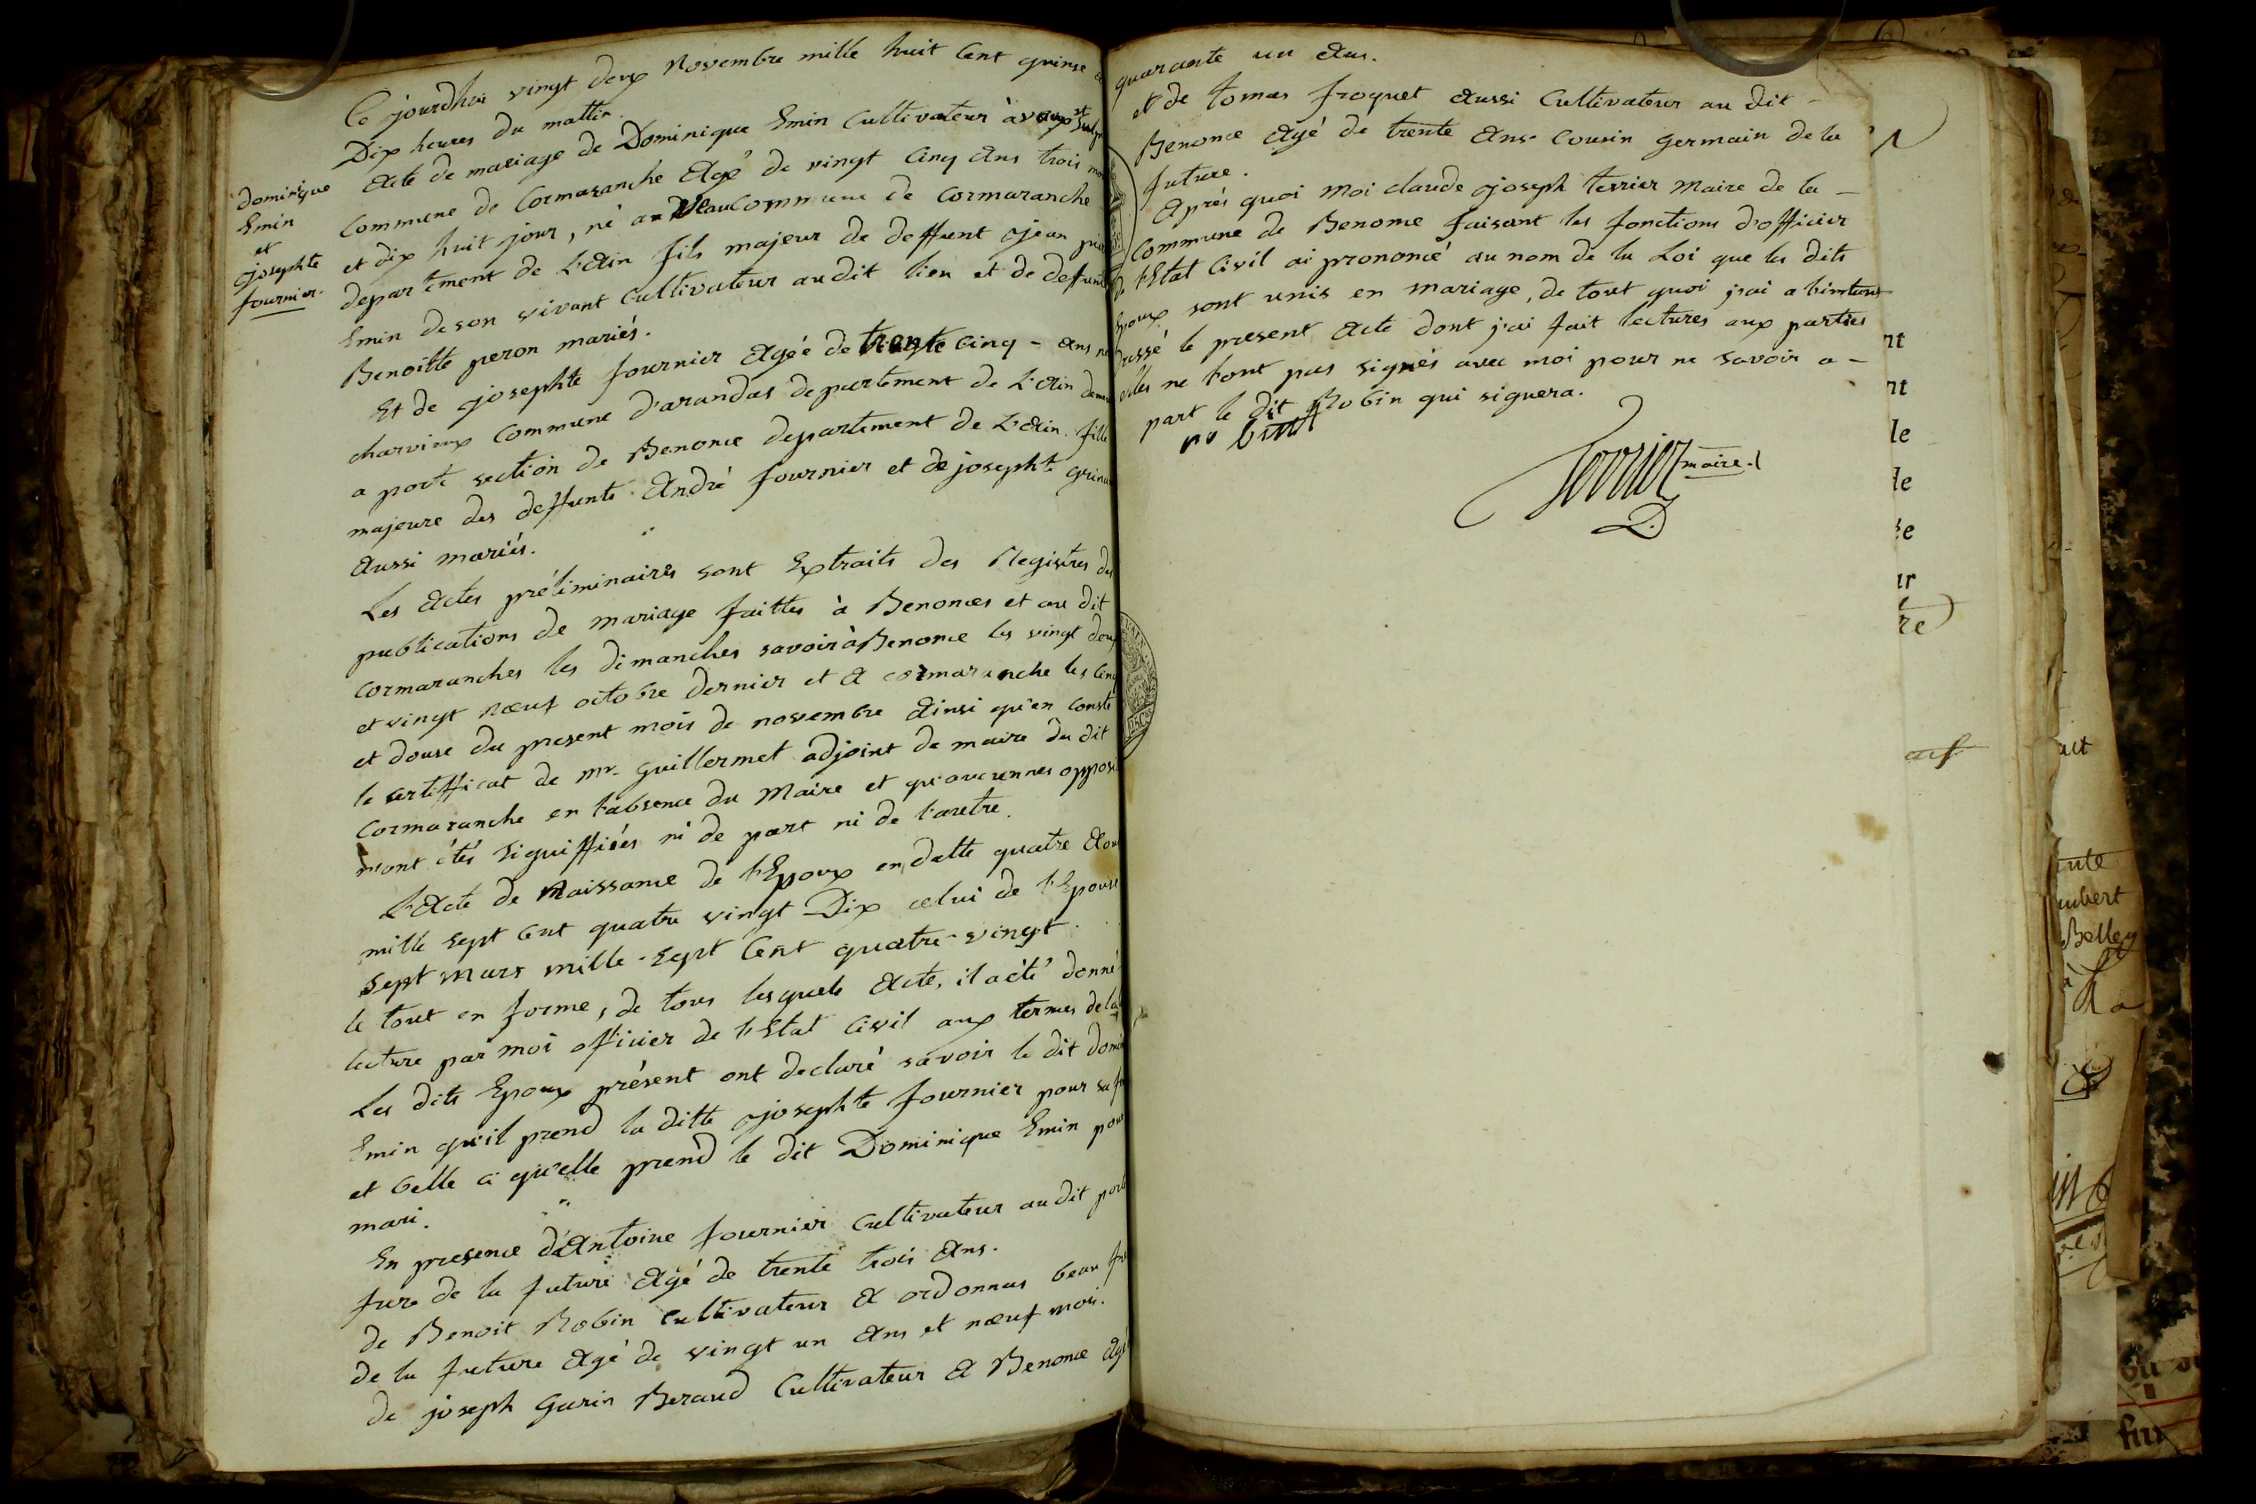 Ce jourdhui vingt deux Novembre mille huit Cent quinse
Dix heures du mattin.
Dominique
Emin
et
josephte
fournier.
Acte de mariage de Dominique Emin Cultivateur à
Commune de Cormaranche Agé de vingt Cinq Ans trois
et dix huit jour, né au Commune de Cormaranche
departement de L'Ain fils majeur de deffunt jean
Emin de son vivant Cultivateur audit lieu et de deffunte
Benoitte peron mariés.
Et de josephte fournier Agée de trente Cinq - Ans
charvieux Commune d'arandas departement de L'Ain
a porte section de Benonce departement de L'Ain. fille
majeure des deffunts André fournier et de josephte
Aussi mariés.
Les Actes préliminaires sont Extraits des Registres des
publications de mariage faittes à Benonces et au dit
Cormaranches les dimanches savoir à Benonce les vingt deux
et vingt nœuf octobre dernier et A cormaranche les Cinq
et douse du present mois de novembre Ainsi qu'en Conste
le sertifficat de mr. Guillermet adjoint de maire du dit
Cormaranche en l'absence du Maire et qu'aucunnes
n'ont étés signiffiées ni de part ni de l'autre.
L'Acte de Naissance de l'Epoux en datte quatre
mille sept cent quatre vingt Dix celui de l'Epouse
sept mars mille - sept Cent quatre - vingt.
le tout en forme, de tous lesquels Acte, il a été donné
lecture par moi officier de l'Etat Civil aux termes de la
Les dits Epoux présent ont declaré savoir le dit
Emin qu'il prend la ditte josephte fournier pour sa
et Celle ci qu'elle prend le dit Dominique Emin pour
mari.
En presence d'Antoine fournier Cultivateur au dit porte
frere de la future Agé de trente trois Ans.
de Benoit Robin Cultivateur A ordonnas beau
de la future Agé de vingt un Ans et nœuf mois.
de joseph Gurin Beraud Cultivateur A Benonce Agé
quarante un Ans.
et de tomas froquet Aussi Cultivateur au dit -
Benonce Agé de trente Ans Cousin germain de la
future.
Aprés quoi Moi claude joseph terrier Maire de la -
Commune de Benonce faisant les fonctions d'officier
de l'Etat Civil ai prononcé au nom de la Loi que les dits
Epoux sont unis en mariage, de tout quoi j'ai a l'instant
dressé le present Acte dont j'ai fait lectures aux parties
elles ne l'ont pas signés avec moi pour ne savoir a -
part le dit Robin qui signera.
Terrier maire